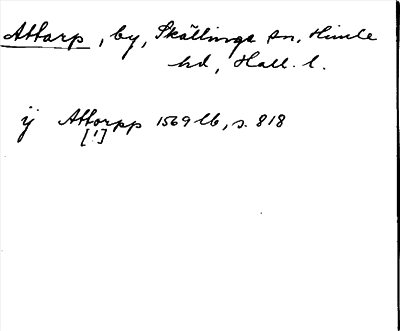 Attarp, by, Skällinge sn, Himle
hd, Hall. l.
ij Attorpp 1569 lb, s. 818
[!]